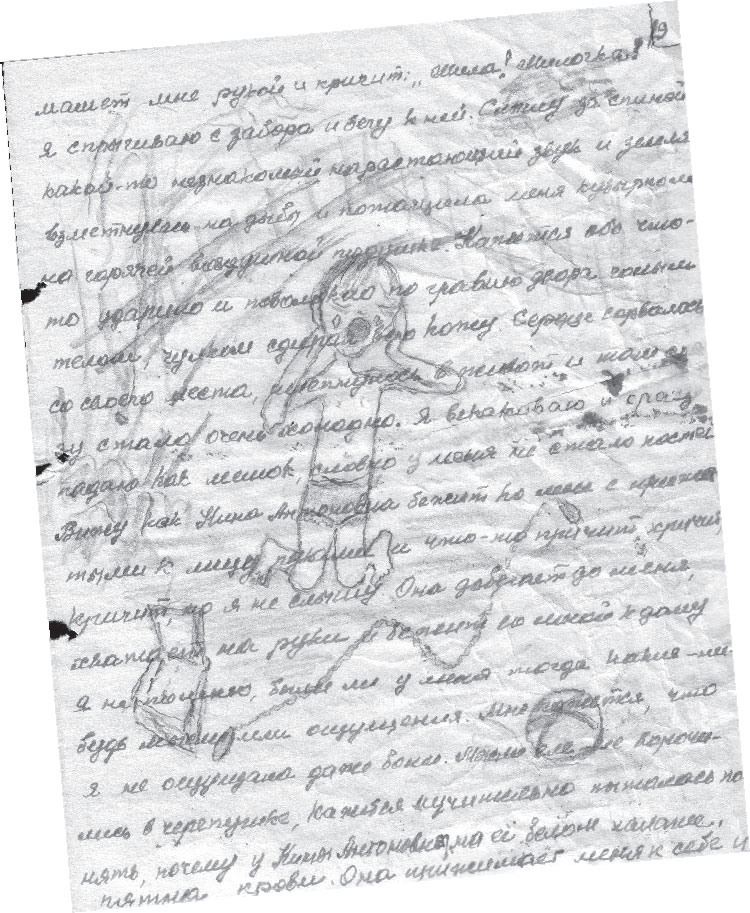 19
машет мне рукой и кричит: „Мила! Милочка!
Я спрыгиваю с забора и бегу к ней. Слышу за спиной
какой-то незнакомый нарастающий звук и земля
взметнулась на дыбы и потащила меня кувырком
на горячей воздушной подушке. Кажется обо что-
то ударило и поволокло по гравию двора голым
телом, чулком сдирая кожу. Сердце сорвалось
со своего места, в живот и там
стало очень холодно. Я вскакиваю и сразу
падаю как мешок, словно у меня не стало костей
Вижу как Нина Антоновна бежит ко мне с прижа-
тыми к лицу руками и что-то кричит, кричит,
кричит, но я не слышу. Она добегает до меня,
хватает на руки и бежит со мной к дому
Я не помню, были ли у меня тогда какие-ни-
будь мысли или ощущения. Мне кажется, что
я не ощущала даже боли. Мысли еле-еле вороча-
лись в черепушке, кажется мучительно пыталась по
нять, почему у Нины Антоновны на её белом халате,
пятна крови. Она прижимает меня к себе и